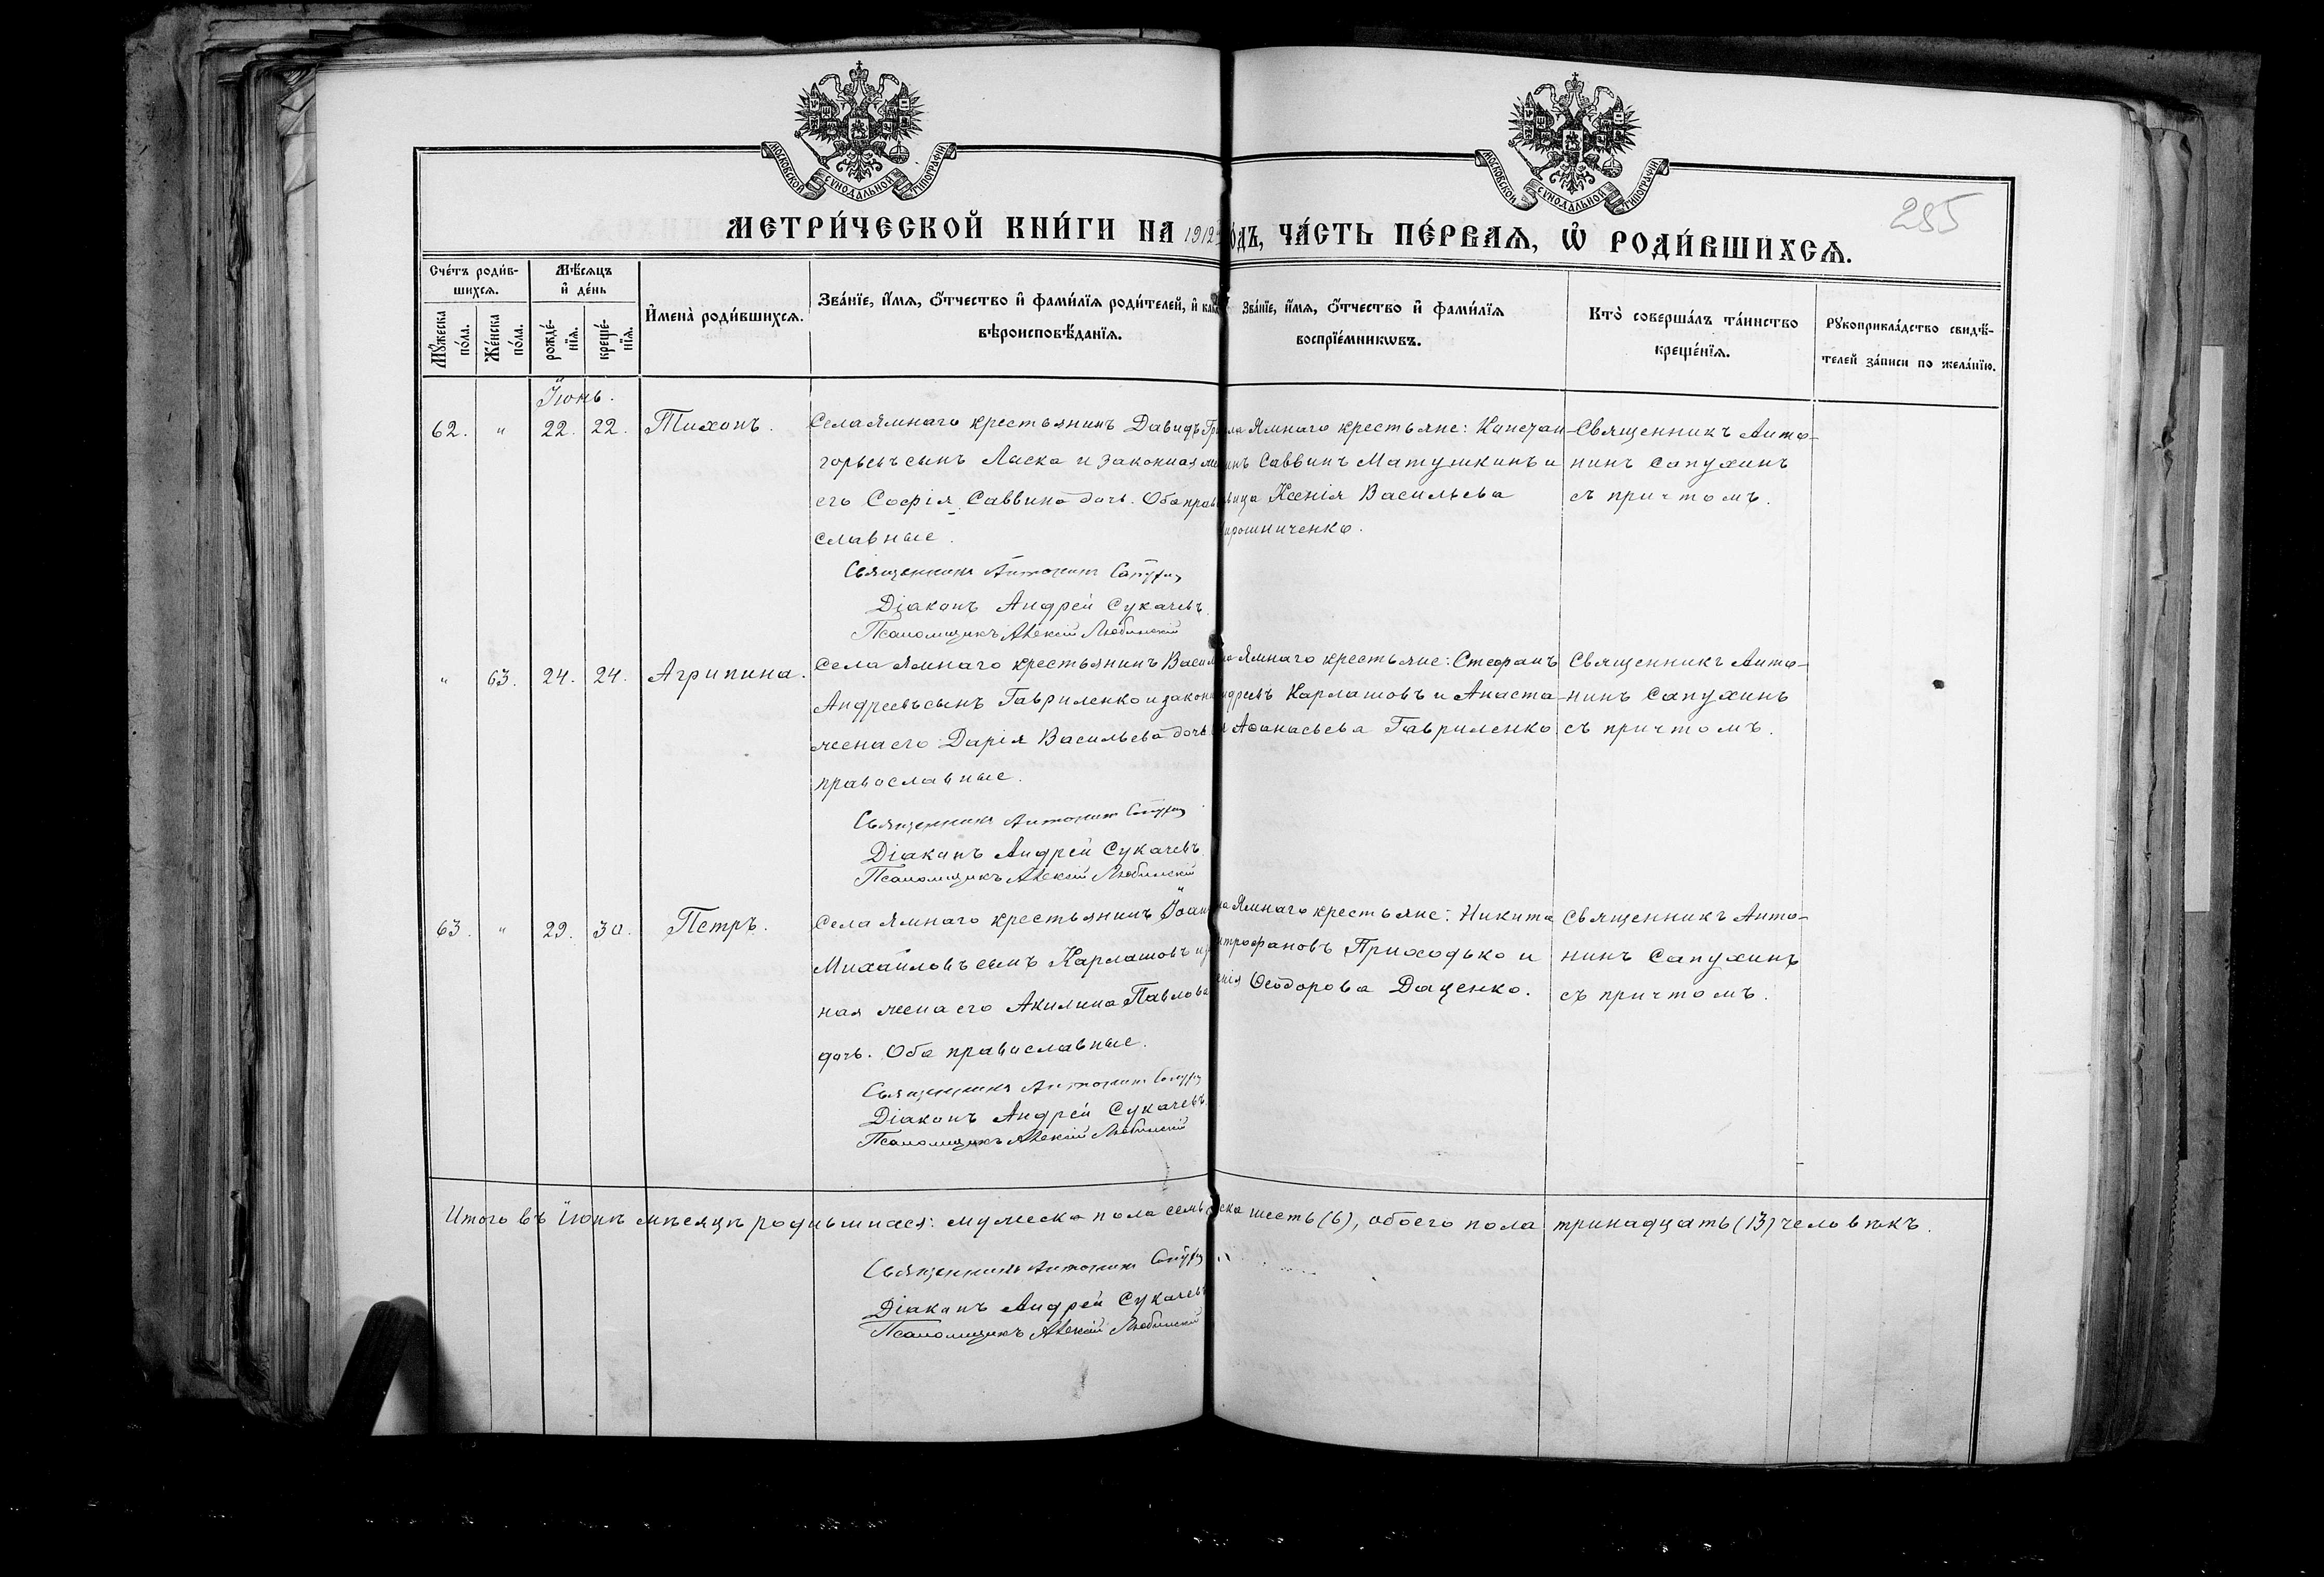 МОСКОВСКОЙ СѴНОДАЛЬНОЙ ТИПОГРАФІИ
МОСКОВСКОЙ СѴНОДАЛЬНОЙ ТИПОГРАФІИ
285
МЕТРИ́ЧЕСКОЙ КНИ́ГИ НА 1912 го́дъ, ЧА́СТЬ ПЕ́РВАѦ, Ѽ РОДИ́ВШИХСѦ.
Сче́тъ роди́в-
шихсѧ.
Мꙋ́жеска
по́ла.
Же́нска
по́ла.
Мѣ́сѧцъ
и҆ де́нь
рожде́-
нїѧ.
креще́-
нїѧ.
И҆мена̀ роди́вшихсѧ.
Зва́нїе, и҆́мѧ, ѻ҆́тчество и҆ фами́лїѧ роди́телей, и҆
вѣроисповѣ́данїѧ.
Зва́нїе, и҆́мѧ, ѻ҆́тчество и҆ фами́лїѧ
воспрїе́мникѡвъ.
Кто̀ соверша́лъ та́инство
креще́нїѧ.
Рꙋкоприкла́дство свидѣ́-
телей за́писи по жела́нїю.
Іюнь.
62. " 22. 22. Тихонъ.
Села Ямнаго крестьянинъ Давидъ Гри
горьевъ сынъ Ласка и законная
его Софія Саввина дочь. Оба право
славные.
Священникъ Антонинъ Сапухин
Діаконъ Андрей Сукачевъ
Псаломщикъ Алексій Любинскій
Ямнаго крестьяне:
Саввинъ Матушкинъ и
Ксенія Васильева
ирошниченко.
Священникъ Анто-
нинъ Сапухинъ
съ причтомъ.
" 63. 24. 24. Агрипина.
Села Ямнаго крестьянинъ Васил
Андреевъ сынъ Гавриленко и закон
жена его Дарія Васильева дочь
православные.
Священникъ Антонинъ Сапухин
Діаконъ Андрей Сукачевъ
Псаломщикъ Алексій Любинскій
Ямнаго крестьяне: Стефанъ
дреевъ Карлашовъ и Анаста-
Аѳанасьева Гавриленко
Священникъ Анто-
нинъ Сапухинъ
съ причтомъ.
63. " 29. 30. Петръ.
Села Ямнаго крестьянинъ Іоан
Михаиловъ сынъ Карлашовъ и
ная жена его Акилина Павлова
дочь. Оба православные.
Священникъ Антонинъ Сапухин
Діаконъ Андрей Сукачевъ
Псаломщикъ Алексій Любинскій
Ямнаго крестьяне: Никита
итрофановъ Приходько и
Ѳеодорова Даценко.
Священникъ Анто-
нинъ Сапухинъ
съ причтомъ.
Итого въ Іюнѣ мѣсяцѣ родившихся: мужеска пола семь шесть (6), обоего пола тринадцать (13) человѣкъ.
Священникъ Антонинъ Сапухин
Діаконъ Андрей Сукачевъ
Псаломщикъ Алексій Любинскій